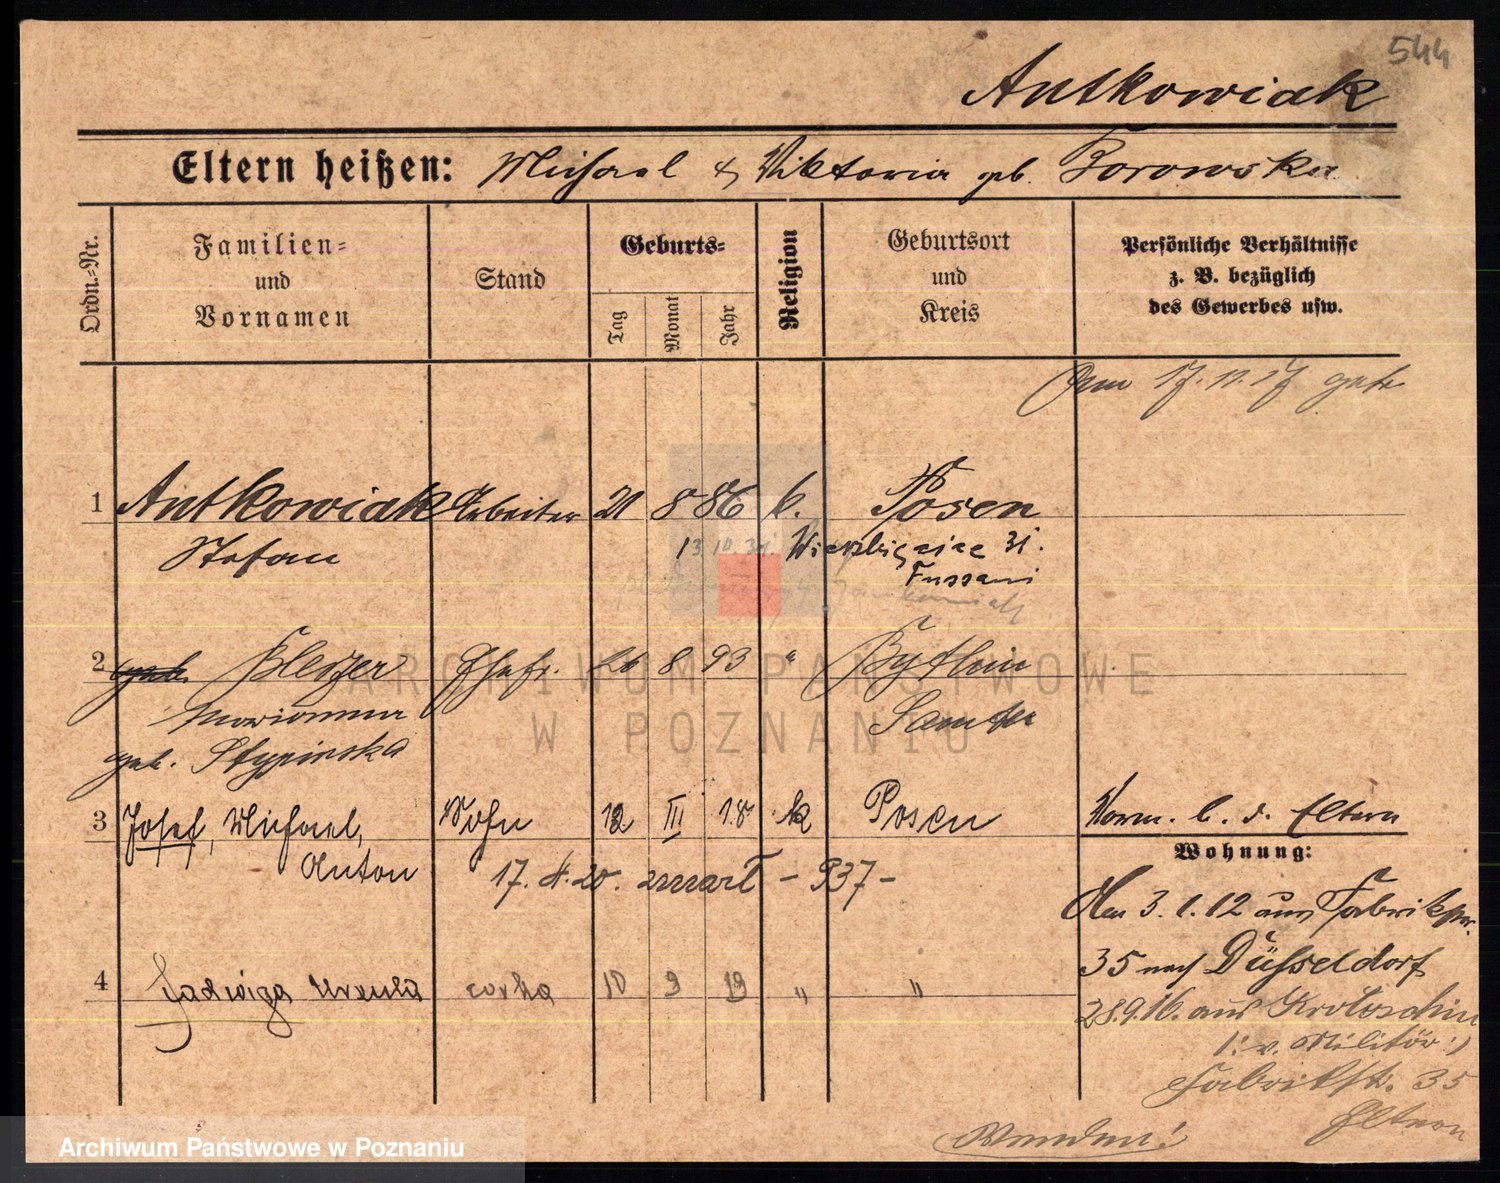 544
Antkowiak
Eltern heißen: Michael & Viktoria geb. Borowska
Ordn.=Nr.
Familien=
und
Vornamen
Stand
Geburts=
Tag
Monat
Jahr
Religion
Geburtsort
und
Kreis
Persönliche Verhältnisse
z. B. bezüglich
des Gewerbes usw.
17. 11. 17
1 Antkowiak Arbeiter 21 8 86 k. Posen
Stefan
13 10. 31. Wierzbięcice 31.
2 geb. Ehefr. 26 8 93 "
Marianna Samter
geb.
3 Josef, Michael, Sohn 12 III 18 k Posen
Anton
17. 4. 20. zmarł - 937 -
Vorm. b. d. Eltern
Wohnung:
Am 3. 1. 12 aus Fabrikstr.
35 nach Düsseldorf
4 Jadwiga Urszula corka 10 9 19 " "
28.9.16. aus Krotoschin
/: v. Militär :/
Fabrikstr. 35
Eltern
Wenden!
ARCHIWUM PAŃSTWOWE
W POZNANIU
Archiwum Państwowe w Poznaniu